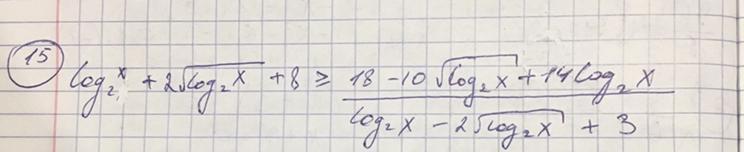 15 log₂ˣ + 2√log₂x + 8 ≥ (18 - 10√log₂x + 14log₂x) / (log₂x - 2√log₂x + 3)